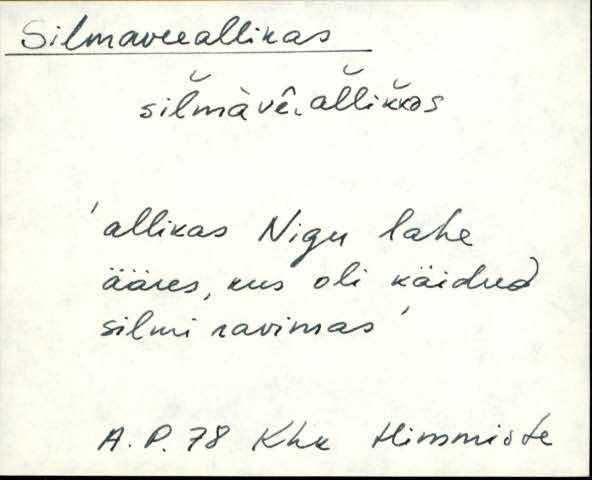 Silmaveeallikas
silmàvê.allikkəs
'allikas Nigu lahe
ääres, kus oli käidud
silmi ravimas'
A. P. 78 Khk Himmiste